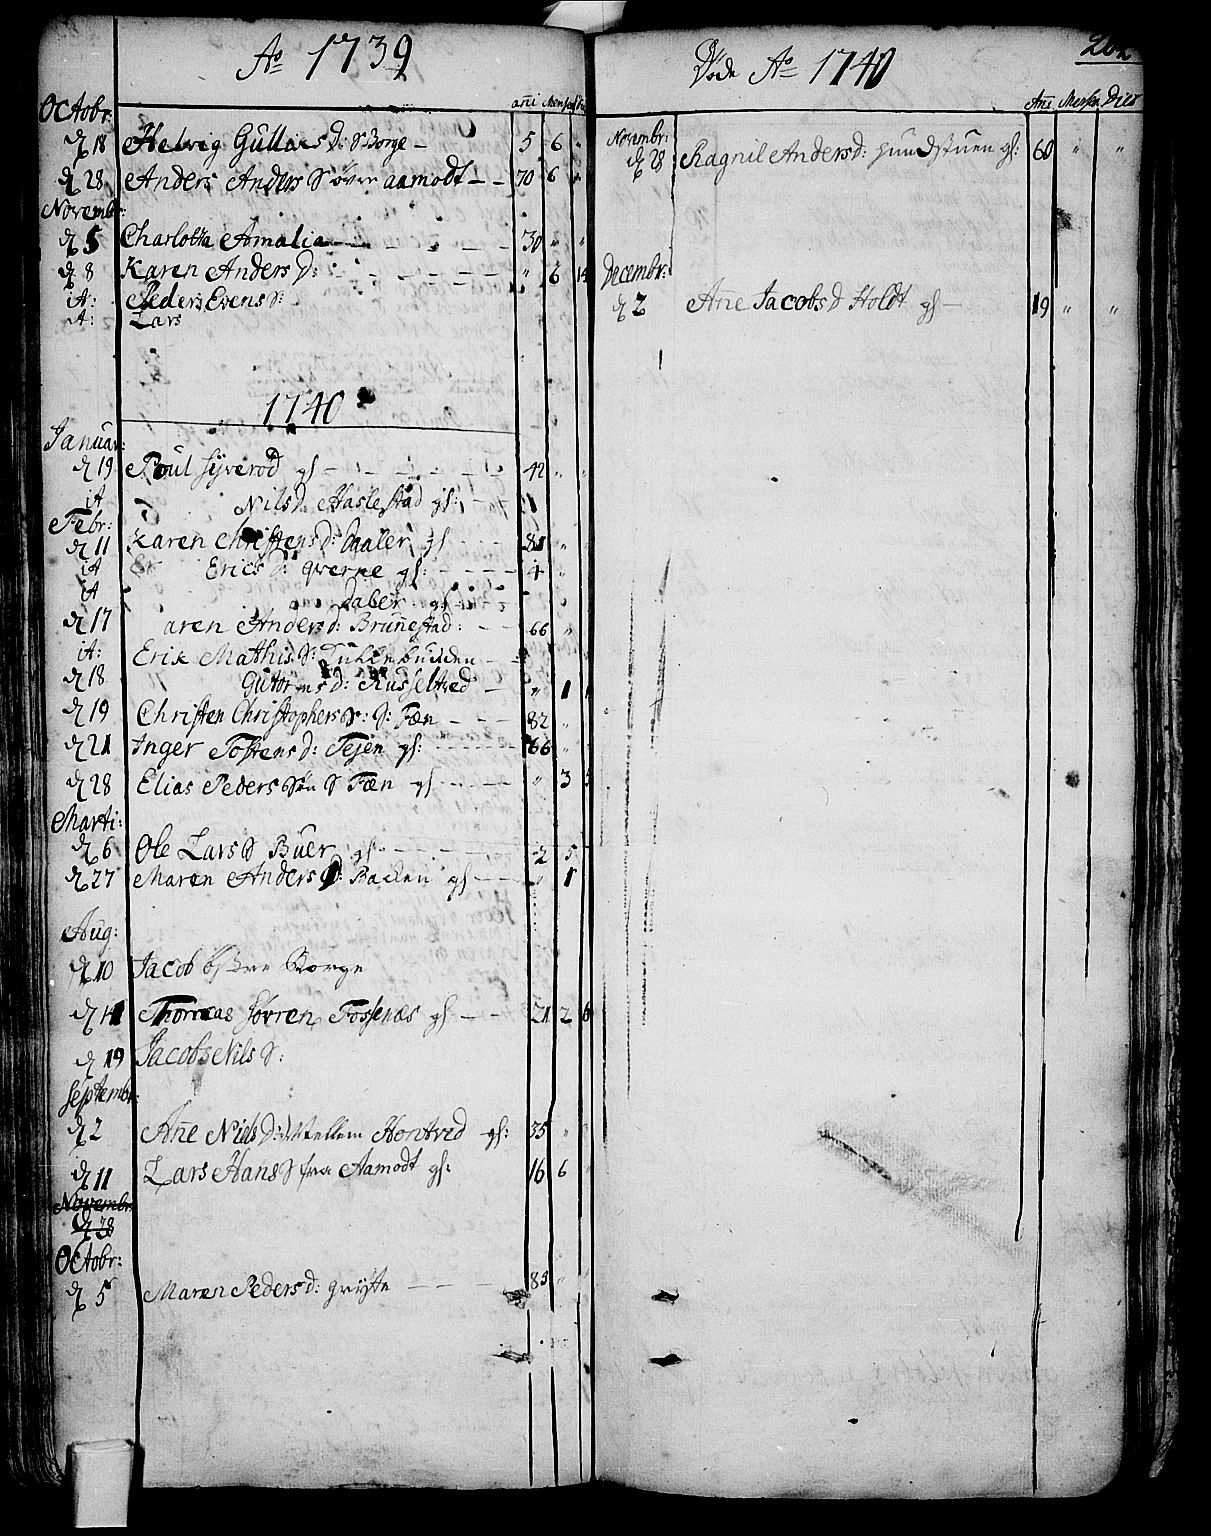 Ao 1739
ani Mens
Octobr:
d 18 Helvig Gullaisd: S Borge – 5 6 "
d 28 Anders Anders Søvn aamodt – – 70 6 "
Novembr:
d 5 Charlotta Amalia – – – 30 " "
d 8 Karen Anders D: – – – " 6 14
it: Peder Evens S:
it: Lars
1740
Januar:
d 19 Poul gs – – – 42 " "
it Nilsd Haslestad gs: – – 1
Febr:
d 11 Karen Christensd: gs – – – 81 " "
it Ericsd: qverne gs: – – – 4 "
it gs
d 17 aren Andersd: Brunestad: – – 66 "
it: Erik Mathis S:
d 18 Gutormsd: – " 1
d 19 Christen Christophers S: Fæn – – – 82 "
d 21 Inger Tostensd: Tejen gs: – – – 66 "
d 28 Elias Peders Søn S Fæn gs – – – " 3
Marti:
d 6 Ole Lars S Buer gs – – – 2 5
d 27 Maren Anders D: Backen gs – – – " 1
Aug:
d 10 Jacob Borge
d 11 Thomas Sövren Fossenæs gs – – 21 2 6
d 19 Jacob Nils S:
Septembr:
d 2 Añe Nielsd: Mellem Hontved gs: 35 " "
d 11 Lars Hans S fra Aamodt gs: 16 6 "
Novembr:
d 28
Octobr:
d 5 Maren Pedersd: gryte – – – 83 "
Døde Ao 1740
262
Añi Mens Dies
Novembr:
d 28 Ragnil Andersd: hundstuen gs: 60 " "
Decembr:
d 2 Añe Jacobsd Holdt gs – 19 " "